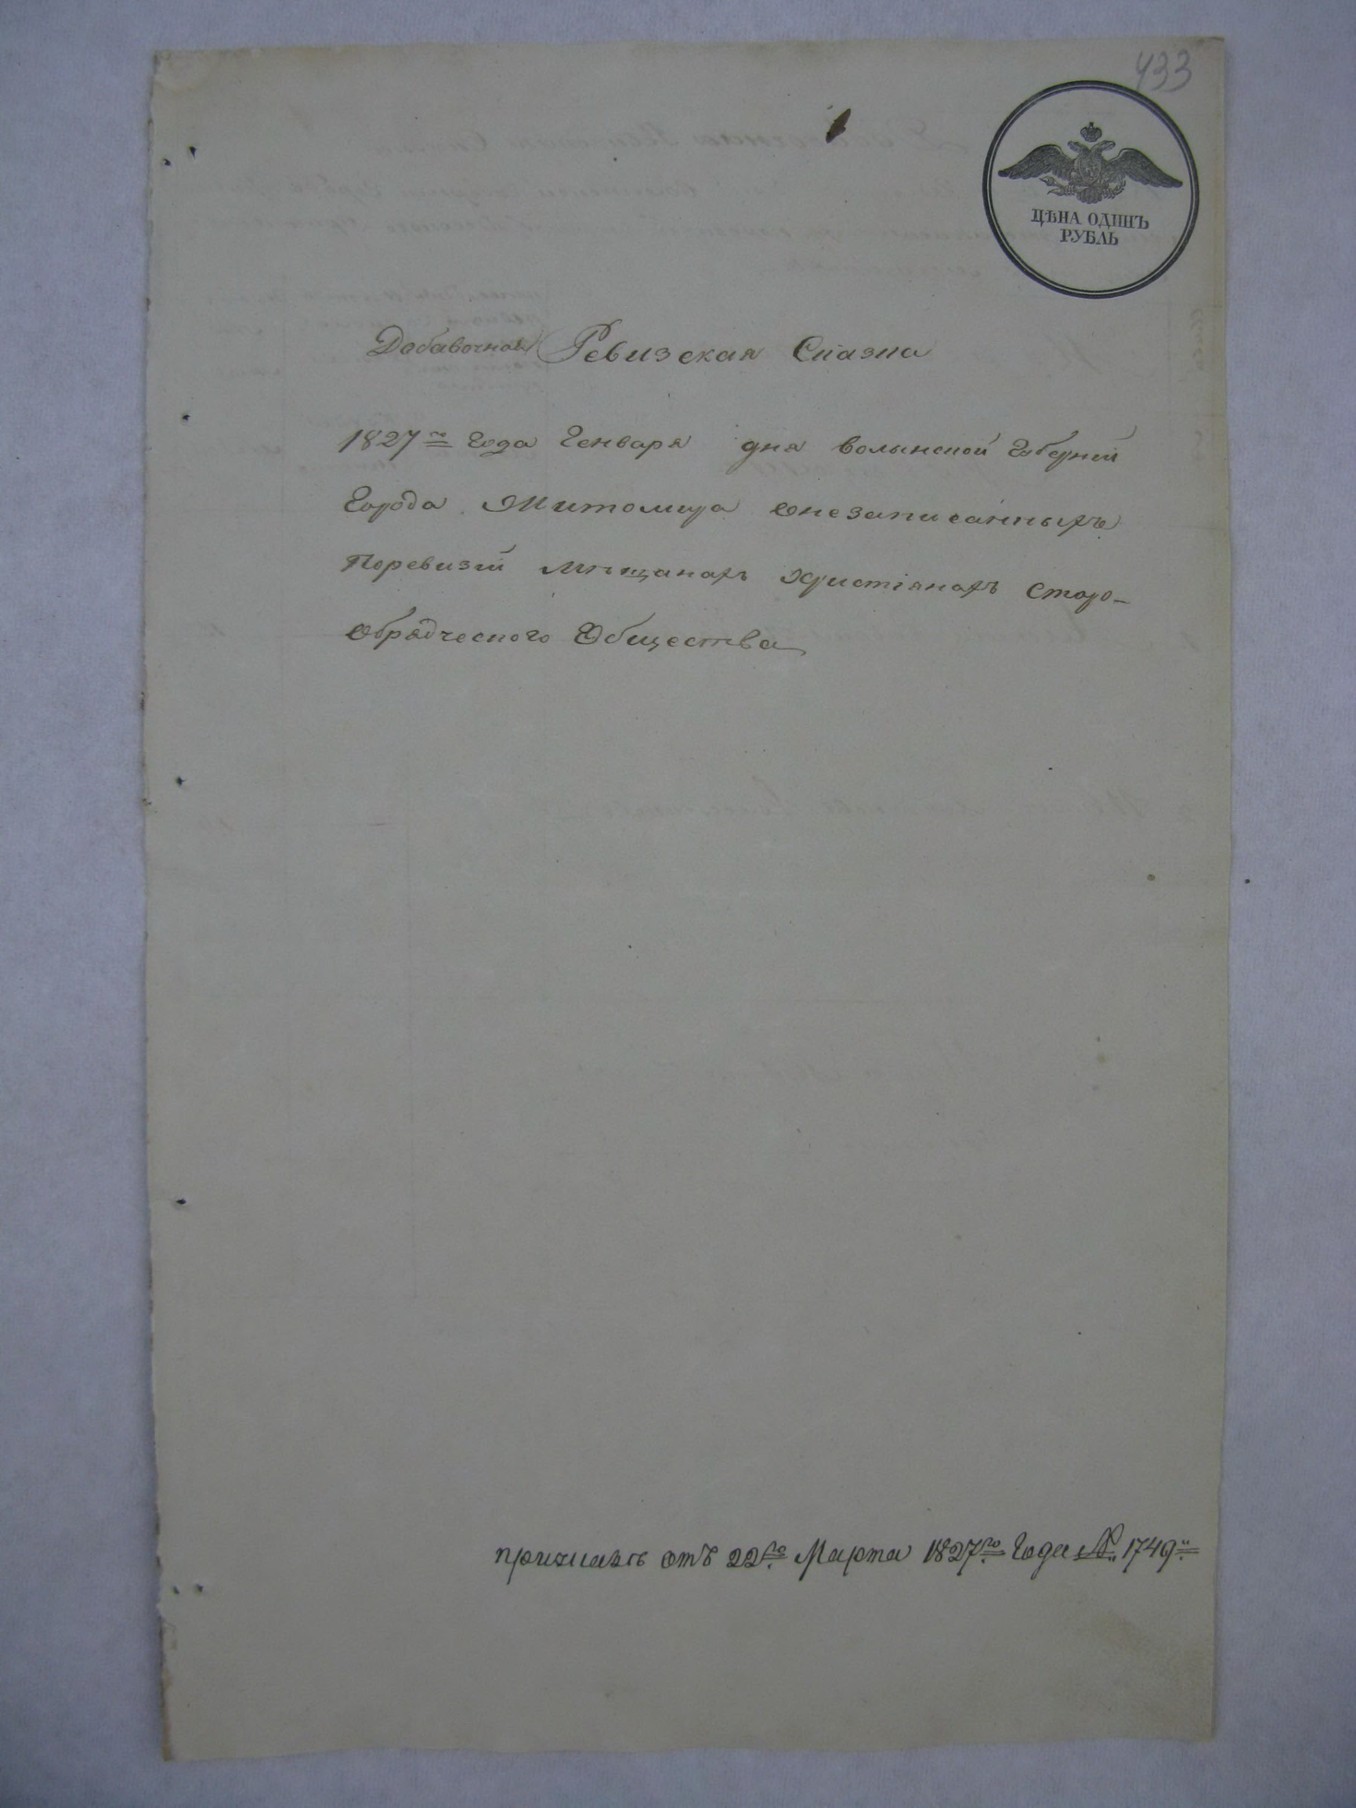 433
ЦѢНА ОДИНЪ
РУБЛЬ
Добавочная Ревизская Сказка
1827го Года Генваря дня волынской Губерний
Города Житомира Онезаписанныхъ
Поревизій Мѣщанахъ Христіянахъ Старо-
обрядческого Общества
отъ 22го Марта 1827го Года № 1749